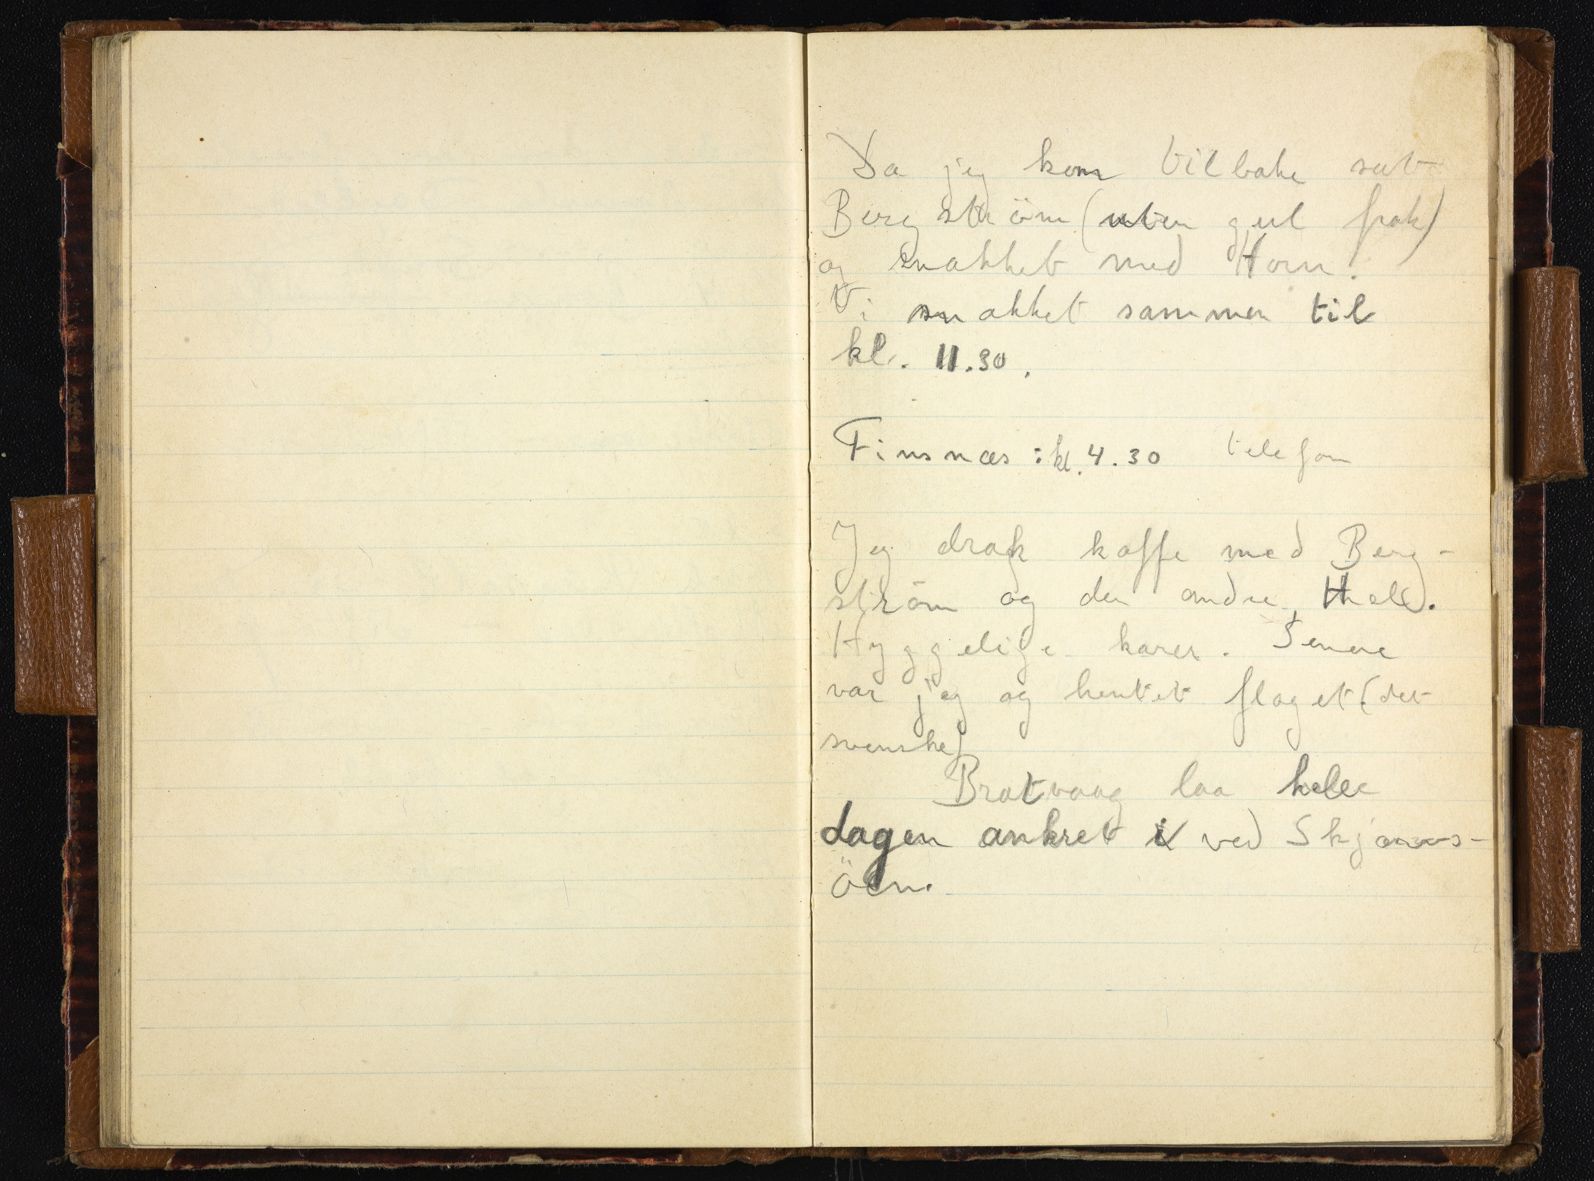 Da jeg kom tilbake sat
Bergström (uten gul frak)
og snakket med Horn.
Vi snakket sammen til
kl. 11.30.
Finsnæs : kl. 4.30 telefon
Jeg drak kaffe med Berg-
ström og den andre,
Hyggelige karer. Senere
var jeg og hentet flaget (det
svenske)
Bratvaag laa hele
dagen ankret i ved
öen.